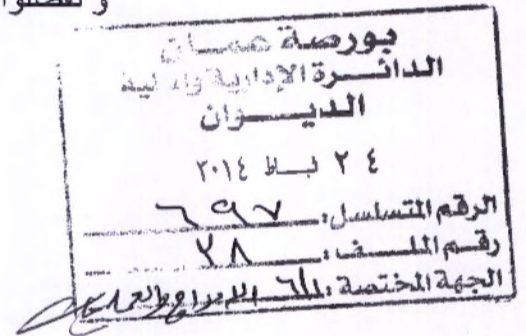 و تفضلوا
بورصة عمان
الدائرة الإدارية والمالية
الديوان
٢٤ شباط ٢٠١٤
الرقم المتسلسل: ٦٩٧
رقم الملف: ٢٨
الجهة المختصة: